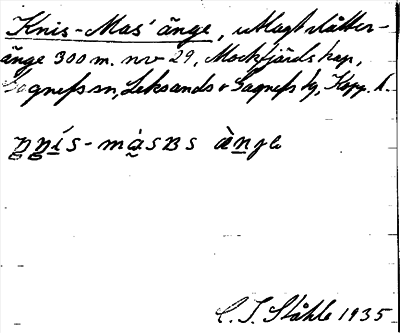 Knis-Mas' änge, utlagt slåtter-
änge 300 m. nv 29, Mockfjärds kap,
Gagnefs sn, Leksands o Gagnefs tg, Kopp. l.
-måsʙs
C. I. Ståhle 1935